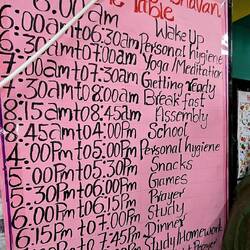 Table
6.00am Wake Up
6.00am to 6:30am Personal hygiene
6:30am to 07:00am Yoga/Meditation
7:00am to 7:30am Getting ready
7:30am to 08:00am Breakfast
8:15am to 08:45am Assembly
8:45am to 04:00Pm School
4:00Pm to 05:00Pm Personal hygiene
5:00Pm to 05:30Pm Snacks
5:30Pm to 06:00Pm Games
6:00Pm to 06:15Pm Prayer
6:15Pm to 07:00Pm Study
to 7:45Pm Dinner
Study Homework